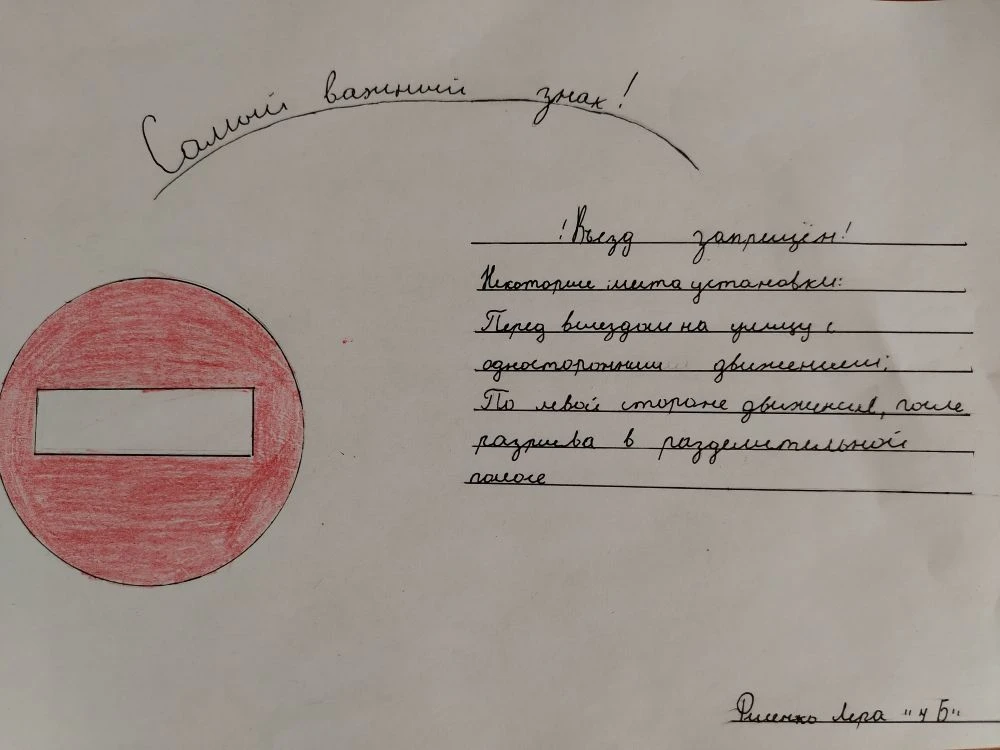 Самый важный знак!
!Въезд запрещён!
Некоторые места установки:
Перед выездом на улицу с
односторонним движением;
По левой стороне движения, после
разрыва в разделительной
полосе
Лера "4 Б"